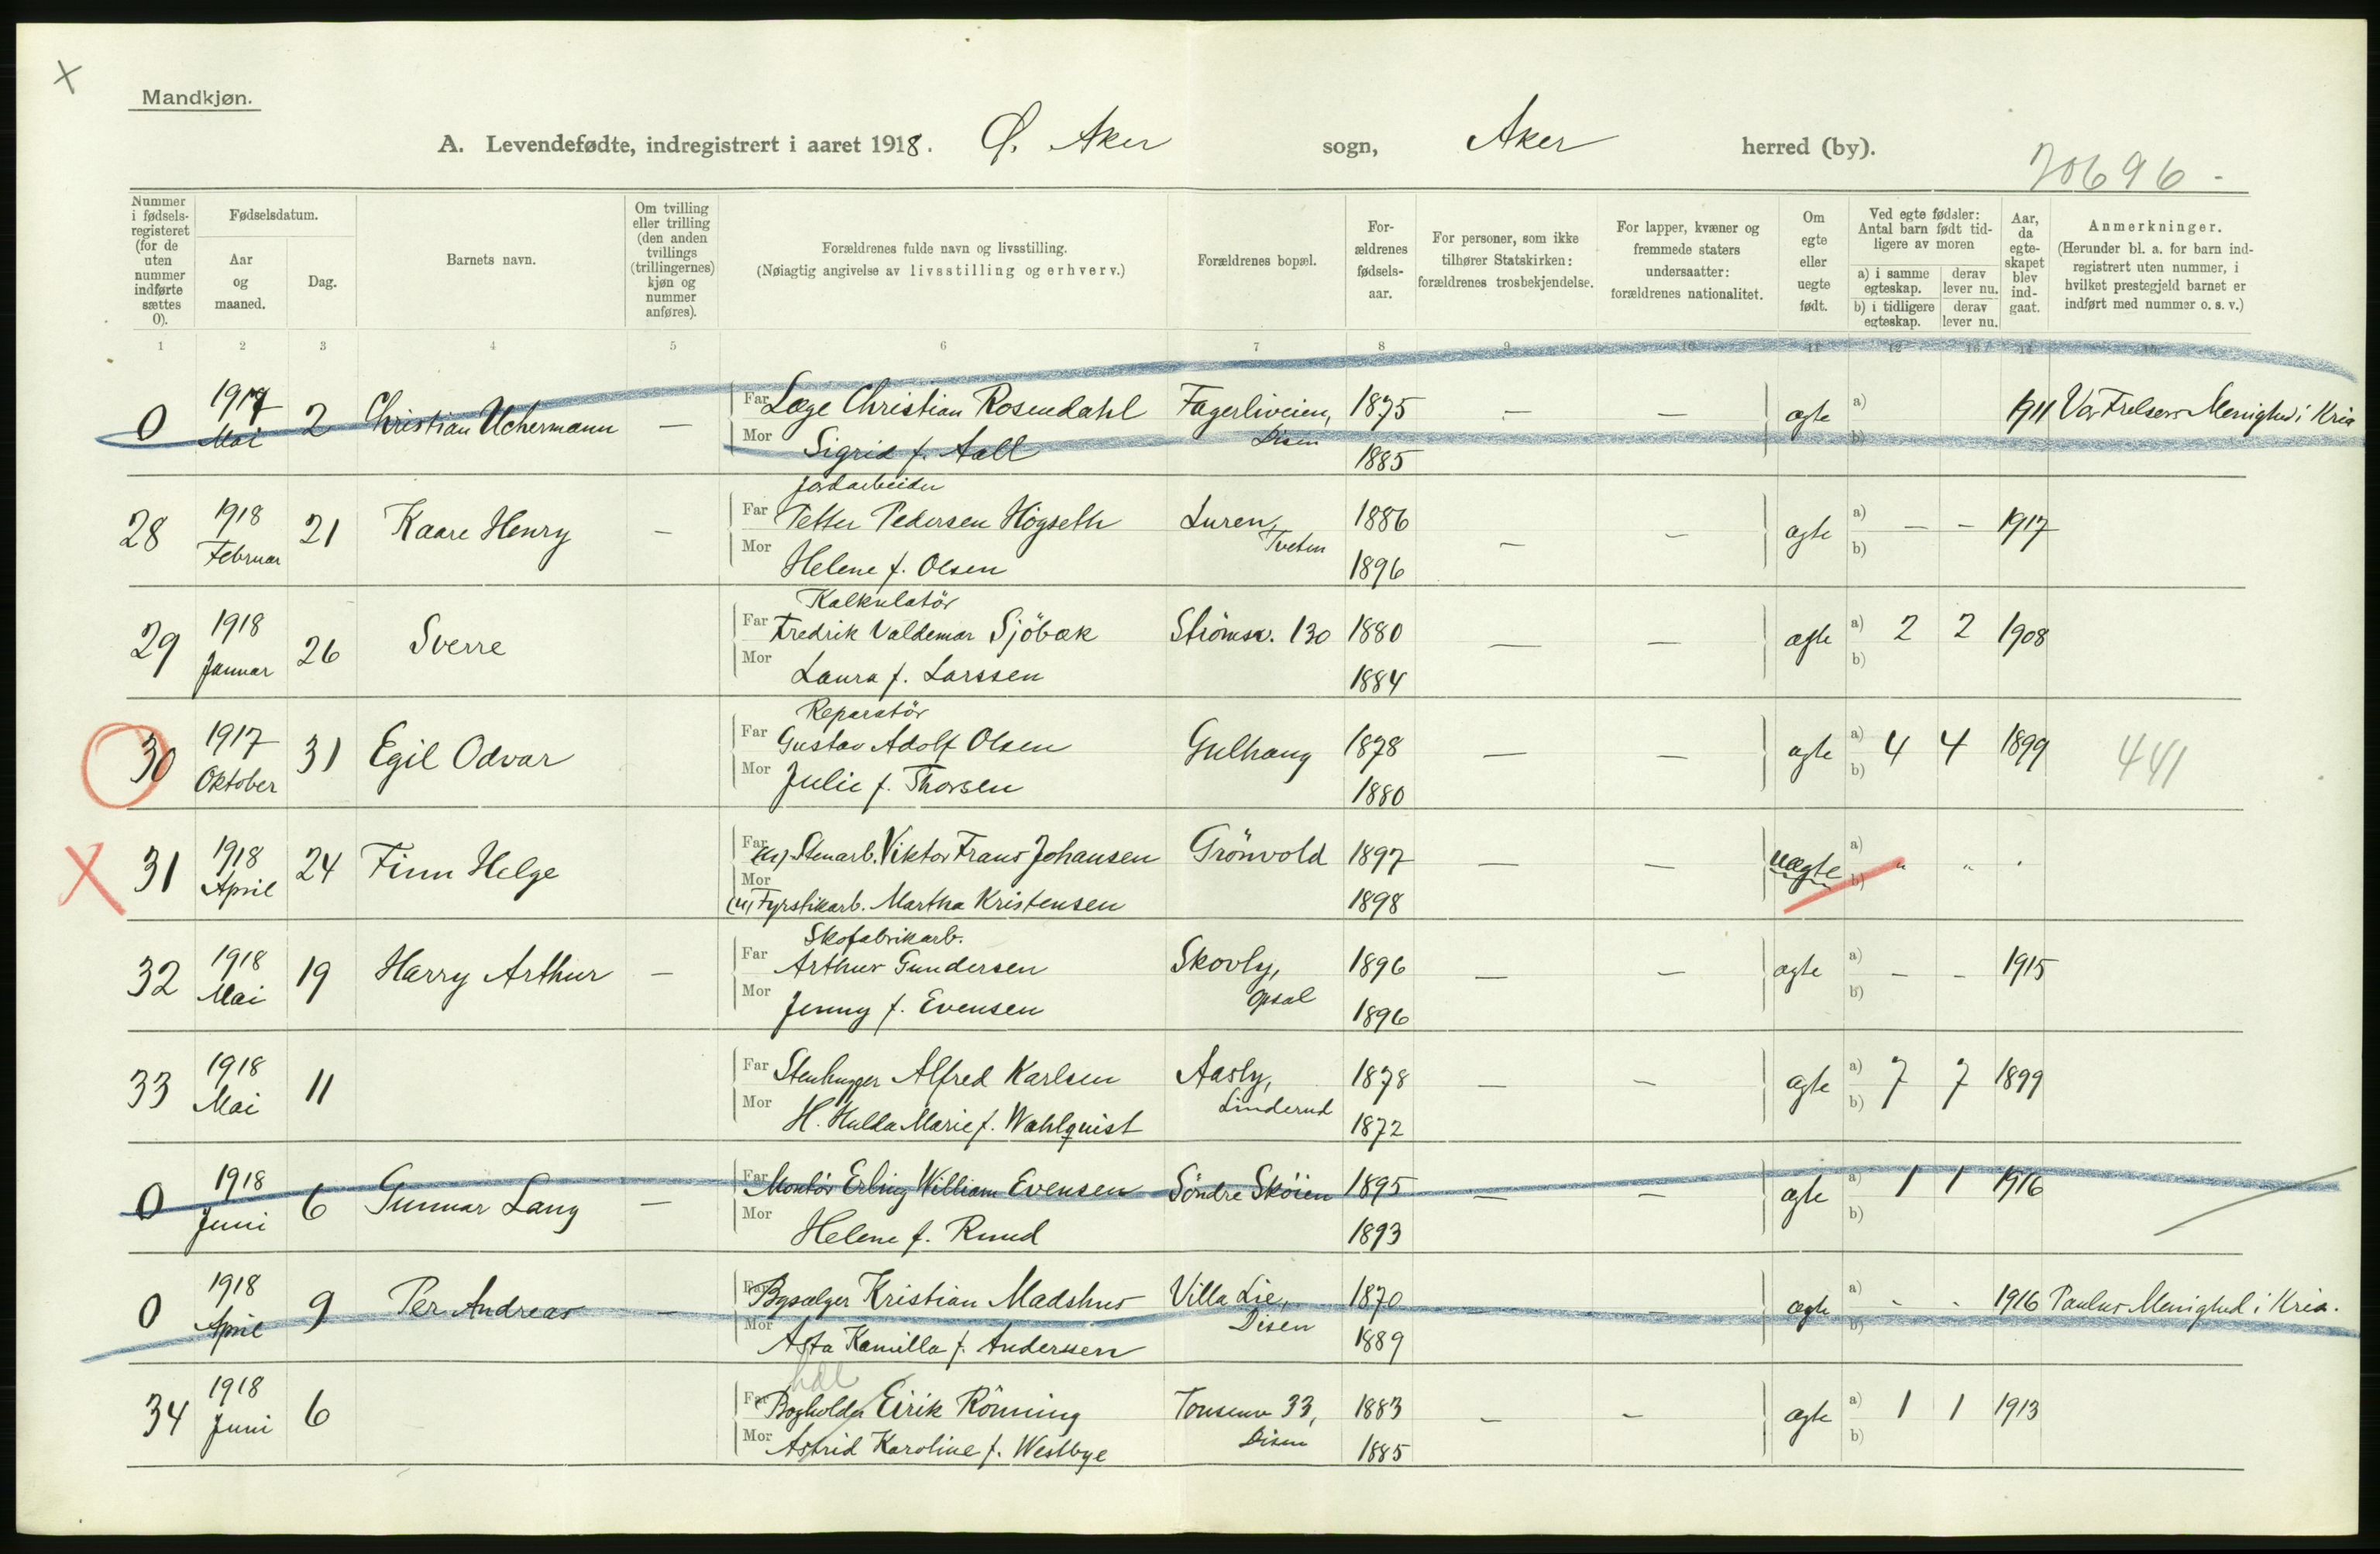 Mandkjøn.
A. Levendefødte, indregistrert i aaret 1918. Ø. Aker sogn, Aker herred (by).
20696 -
Nummer i fødsels-registeret (for de uten nummer indførte sættes 0).
Fødselsdatum.
Aar og maaned.
Dag.
Barnets navn.
Om tvilling eller trilling (den anden tvillings (trillingernes) kjøn og nummer anføres).
Forældrenes fulde navn og livsstilling.
(Nøiagtig angivelse av livsstilling og erhverv.)
Forældrenes bopæl.
For-ældrenes fødsels-aar.
For personer, som ikke tilhører Statskirken: forældrenes trosbekjendelse.
For lapper, kvæner og fremmede staters undersaatter: forældrenes nationalitet.
Om egte eller uegte født.
Ved egte fødsler: Antal barn født tid-ligere av moren
a) i samme egteskap. derav lever nu.
b) i tidligere egteskap. derav lever nu.
Aar, da egte-skapet blev ind-gaat.
Anmerkninger.
(Herunder bl. a. for barn ind-registrert uten nummer, i hvilket prestegjeld barnet er indført med nummer o. s. v.)
1 2 3 4 5 6 7 8 9 10 11 12 13 14 15
0 1917 Mai 2 Christian Uchermann — Far Læge Christian Rosendahl Fagerliveien, Disen 1875 — — ægte a) b) 1911 Vor Frelsers Menighed i Kria
Mor Sigrid f. Aall 1885
28 1918 Februar 21 Kaare Henry — Jordarbeider
Far Petter Pedersen Högseth Luren, Tveten 1886 — — ægte a) — — 1917
Mor Helene f. Olsen 1896 b)
29 1918 Januar 26 Sverre Kalkulatör
Far Fredrik Valdemar Sjöbæk Strömsv. 130 1880 — — ægte a) 2 2 1908
Mor Laura f. Larssen 1884 b)
30 1917 Oktober 31 Egil Odvar Reparatör
Far Gustav Adolf Olsen Gulhaug 1878 — — ægte a) 4 4 1899 441
Mor Julie f. Thorsen 1880 b)
31 1918 April 24 Finn Helge Far (u) Stenarb. Viktor Frans Johansen Grönvold 1897 — — uægte a) " "
Mor (u) Fyrstikarb. Martha Kristensen 1898 b)
32 1918 Mai 19 Harry Arthur — Skofabrikarb.
Far Arthur Gundersen Skovly, Opsal 1896 — — ægte a) — — 1915
Mor Jenny f. Evensen 1896 b)
33 1918 Mai 11 Far Stenhugger Alfred Karlsen Aasly, Linderud 1878 — — ægte a) 7 7 1899
Mor H. Hulda Marie f. Wahlquist 1872 b)
0 1918 Juni 6 Gunnar Lang — Far Montör Erling William Evensen Söndre Sköien 1895 — — ægte a) 1 1 1916
Mor Helene f. Ruud 1893 b)
0 1918 April 9 Per Andreas — Far Bysælger Kristian Madshus Villa Lie, Disen 1870 — — ægte a) - - 1916 Paulus Menighed i Kria.
Mor Asta Kamilla f. Anderssen 1889 b)
34 1918 Juni 6 Far Bogholder Eirik Rönning Tonsenv 33, Disen 1883 — — ægte a) 1 1 1913
Mor Astrid Karoline f. Westbye 1885 b)